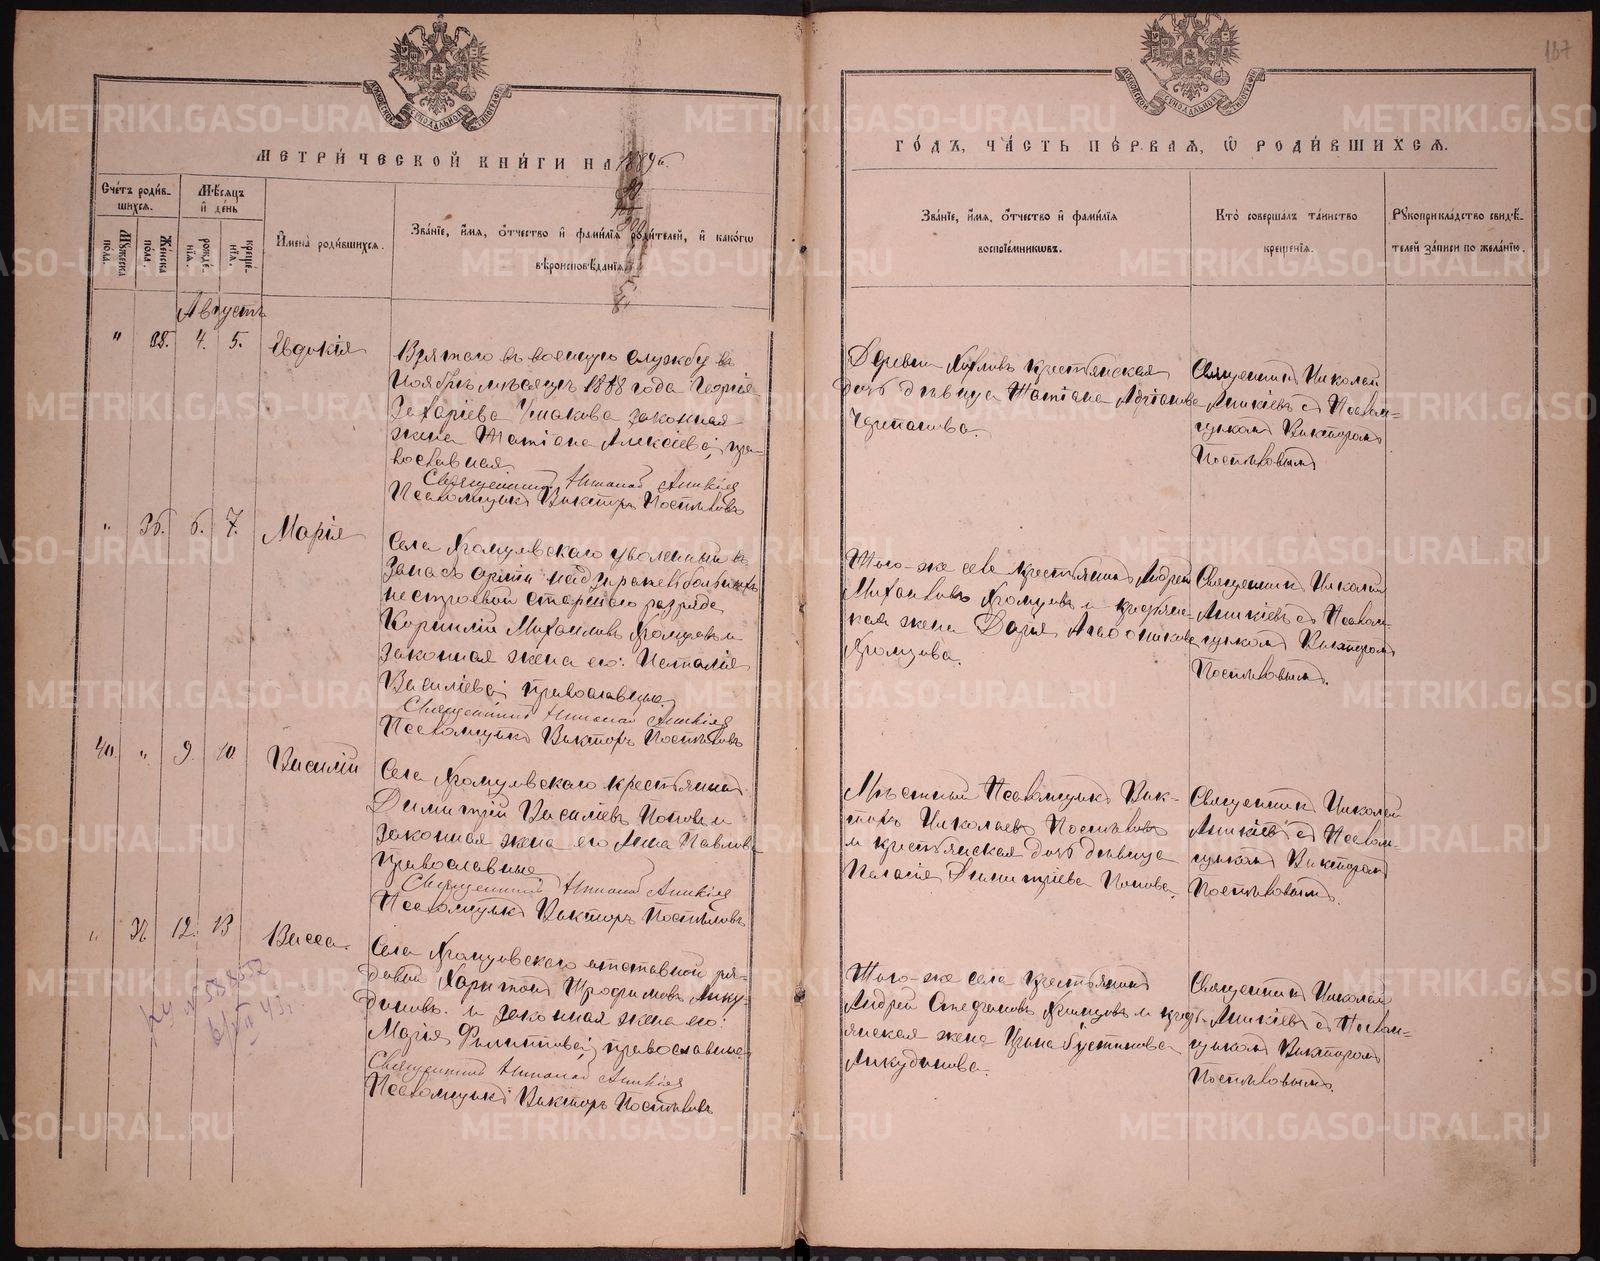 187
МЕТРИ́ЧЕСКОЙ КНИ́ГИ НА 1889
ГО́ДЪ, ЧА́СТЬ ПЕ́РВАЯ, Ѡ РОДИ́ВШИХСЯ.
Сче́тъ роди́в-
шихся.
Мꙋ́жеска
по́ла.
Же́нска
по́ла.
Мѣ́сяцъ
и́ де́нь
рожде́-
нїя.
креще́-
нїя.
И́мена̀ роди́вшихся.
Зва́нїе, и́мя, о́тчество и́ фами́лїя роди́телей, и́ како́гѡ
вѣроисповѣ́данїя.
Зва́нїе, и́мя, о́тчество и́ фами́лїя
воспрїе́мникѡвъ.
Кто̀ соверша́лъ та́инство
креще́нїя.
Рꙋкоприкла́дство свидѣ́-
телей за́писи по жела́нїю.
Августъ
" 4. 5. Евдокія
Взятаго въ военную службу въ
Ноябрѣ мѣсяцѣ 1888 года Георгія
Захаріева Ушакова законная
жена Татіана Алексіева, пра-
вославная
Священникъ Николай Аникіевъ
Псаломщикъ Викторъ Поспѣловъ
Деревни крестьянская
дочь дѣвица Татіана
Священникъ Николай
Аникіевъ съ Псалом-
щикомъ Викторомъ
Поспѣловымъ
" 36. 6. 7. Марія
Села Хромцовскаго уволенный въ
запасъ арміи надзиратель больныхъ
нестроевой старшаго разряда
Корнилій Михаиловъ Хромцовъ и
законная жена его: Наталія
Василіева, православные.
Священникъ Николай Аникіевъ
Псаломщикъ Викторъ Поспѣловъ
Того-же села крестьянинъ Андрей
Михаиловъ Хромцовъ и крестьянс-
кая жена Дарія
Хромцова.
Священникъ Николай
Аникіевъ съ Псалом-
щикомъ Викторомъ
Поспѣловымъ.
40. " 9. 10. Василій
Села Хромцовскаго крестьянинъ
Димитрій Василіевъ Поповъ и
законная жена его Анна Павлова
православные
Священникъ Николай Аникіевъ
Псаломщикъ Викторъ Поспѣловъ
Мѣстный Псаломщикъ Вик-
торъ Николаевъ Поспѣловъ
и крестьянская дочь дѣвица
Пелагія Димитріева Попова.
Священникъ Николай
Аникіевъ съ Псалом-
щикомъ Викторомъ
Поспѣловымъ.
" 12. 13 Васса.
Села Хромцовскаго отставной ря-
довой Харитонъ Трофимовъ Анку-
диновъ и законная жена его:
Марія Филиппова, православные
Священникъ Николай Аникіевъ
Псаломщикъ Викторъ Поспѣловъ
Того-же села крестьянинъ
Андрей Стефановъ Хромцовъ и кресть-
янская жена Ирина Іустинова
Анкудинова.
Священникъ Николай
Аникіевъ съ Псалом-
щикомъ Викторомъ
Поспѣловымъ.
METRIKI.GASO-URAL.RU